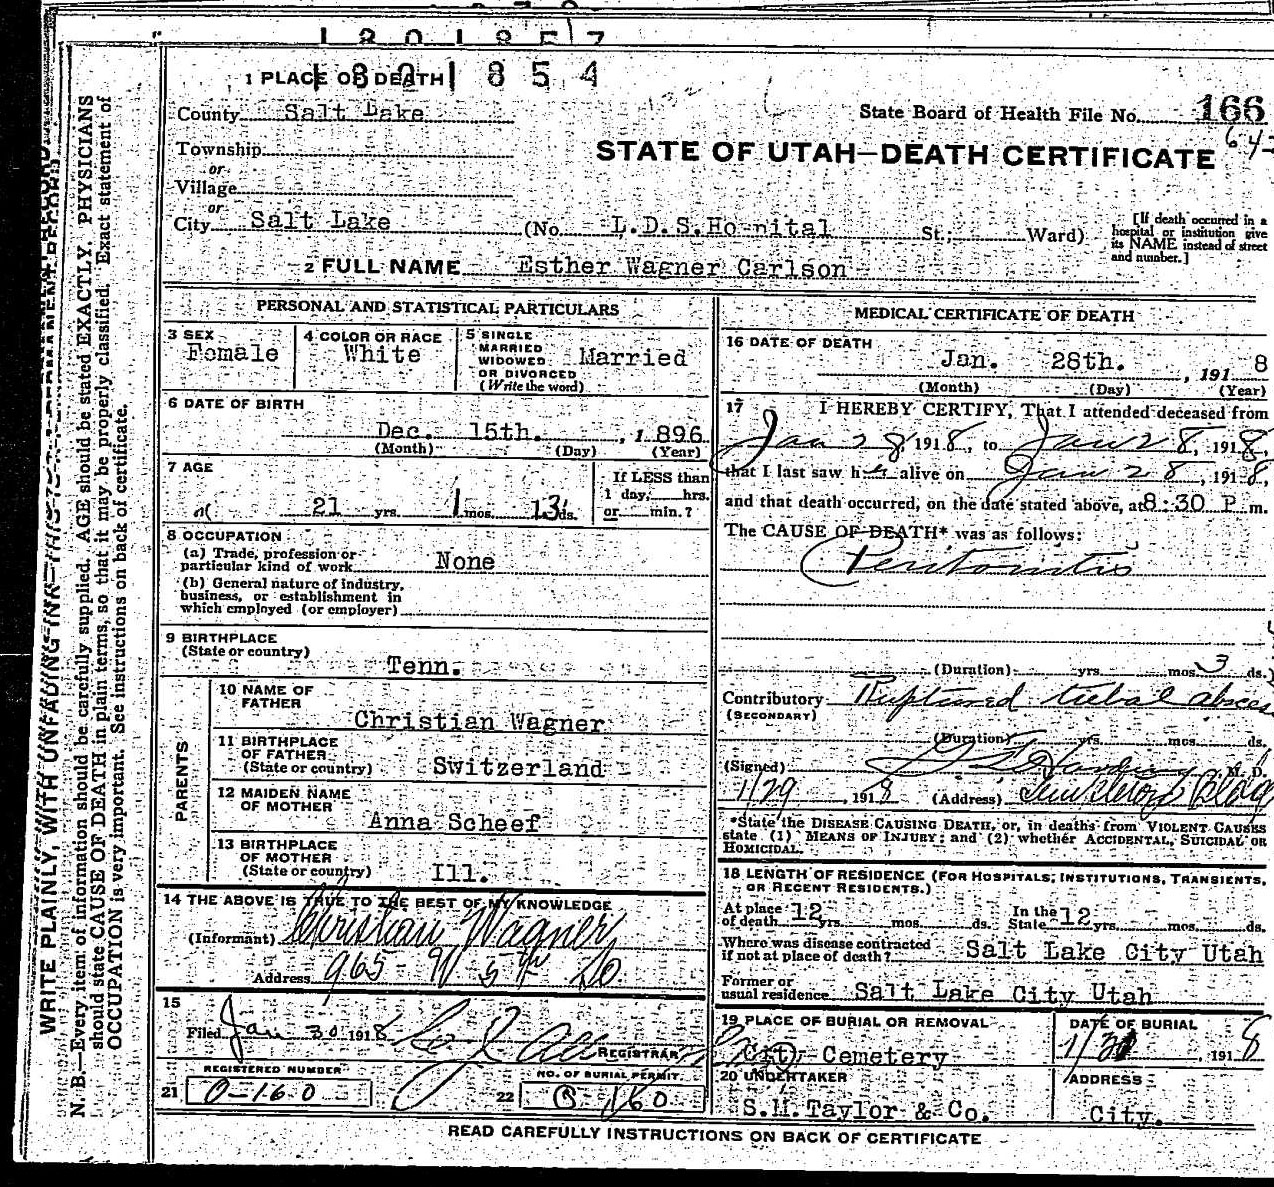 1801857
1801854
1 PLACE OF DEATH
County Salt Lake
State Board of Health File No. 166
64-
Township
or
Village
or
City Salt Lake (No. L.D.S.Ho-nital St; Ward)
[If death occurred in a hospital or institution give its NAME instead of street and number.]
STATE OF UTAH—DEATH CERTIFICATE
2 FULL NAME Esther Wagner Carlson
PERSONAL AND STATISTICAL PARTICULARS
3 SEX
Female
4 COLOR OR RACE
White
5 SINGLE
MARRIED
WIDOWED
OR DIVORCED
(Write the word)
Married
6 DATE OF BIRTH
Dec. 15th. , 1896
(Month) (Day) (Year)
7 AGE
21 yrs. 1 mos. 13 ds.
If LESS than
1 day, hrs.
or min.?
8 OCCUPATION
(a) Trade, profession or
particular kind of work None
(b) General nature of industry,
business, or establishment in
which employed (or employer)
9 BIRTHPLACE
(State or country)
Tenn.
PARENTS
10 NAME OF
FATHER
Christian Wagner
11 BIRTHPLACE
OF FATHER
(State or country) Switzerland
12 MAIDEN NAME
OF MOTHER
Anna Scheef
13 BIRTHPLACE
OF MOTHER
(State or country) Ill.
14 THE ABOVE IS TRUE TO THE BEST OF MY KNOWLEDGE
(Informant) Christian Wagner
Address 965 W 5th So.
15
Filed Jan 30 1918
REGISTRAR
REGISTERED NUMBER
21 0-160
NO. OF BURIAL PERMIT
22 160
MEDICAL CERTIFICATE OF DEATH
16 DATE OF DEATH
Jan. 28th. , 191 8
(Month) (Day) (Year)
17 I HEREBY CERTIFY, That I attended deceased from
Jan 28, 1918, to Jan 28, 1918,
that I last saw her alive on Jan 28, 1918,
and that death occurred, on the date stated above, at 8:30 P. m.
The CAUSE OF DEATH* was as follows:
Peritonitis
(Duration) yrs. mos. 3 ds.
Contributory Ruptured tubal absces
(SECONDARY)
(Duration) yrs. mos. ds.
(Signed) M. D.
1/29, 1918 (Address) Templeton Bldg
*State the DISEASE CAUSING DEATH, or, in deaths from VIOLENT CAUSES
state (1) MEANS OF INJURY; and (2) whether ACCIDENTAL, SUICIDAL OR
HOMICIDAL.
18 LENGTH OF RESIDENCE (FOR HOSPITALS, INSTITUTIONS, TRANSIENTS,
OR RECENT RESIDENTS.)
At place
of death 12 yrs. mos. ds.
In the
State 12 yrs. mos. ds.
Where was disease contracted
if not at place of death? Salt Lake City Utah
Former or
usual residence Salt Lake City Utah
19 PLACE OF BURIAL OR REMOVAL
City Cemetery
DATE OF BURIAL
191 8
20 UNDERTAKER
S.M.Taylor & Co.
ADDRESS
City.
READ CAREFULLY INSTRUCTIONS ON BACK OF CERTIFICATE
WRITE PLAINLY, WITH UNFADING INK—THIS IS A PERMANENT RECORD
N. B.—Every item of information should be carefully supplied. AGE should be stated EXACTLY. PHYSICIANS
should state CAUSE OF DEATH in plain terms, so that it may be properly classified. Exact statement of
OCCUPATION is very important. See instructions on back of certificate.